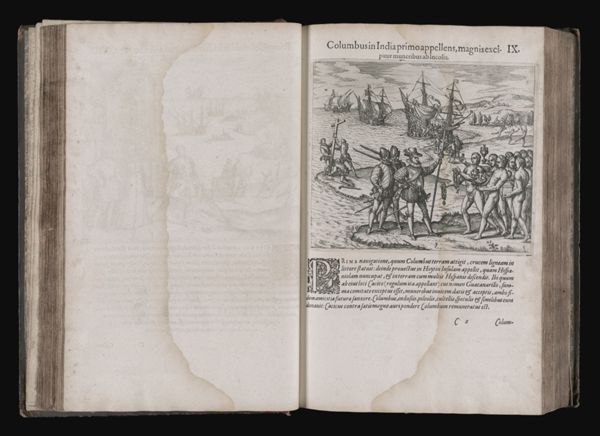 Columbus in India primo appellens, magnis exci- IX.
pitur muneribus ab Incolis.
PRIMA navigatione, quum Columbus terram attigit, crucem ligneam in
littore statuit: deinde provectus in Haytin Insulam appellit, quam Hispa-
niolam nuncupat, & in terram cum multis Hispanis descendit. Ibi quum
ab eius loci Cacico (regulum ita appellant) cui nomen Guacanarillo, sum-
ma comitate exceptus esset, muneribus invicem datis & acceptis, ambo fi-
dem amicitiæ futuræ sanxere. Columbus, indusiis, pileolis, cultellis, speculis & similibus eum
donavit: Cacicus contra satis magno auri pondere Columbum remuneratus est.
C 2 Colum-